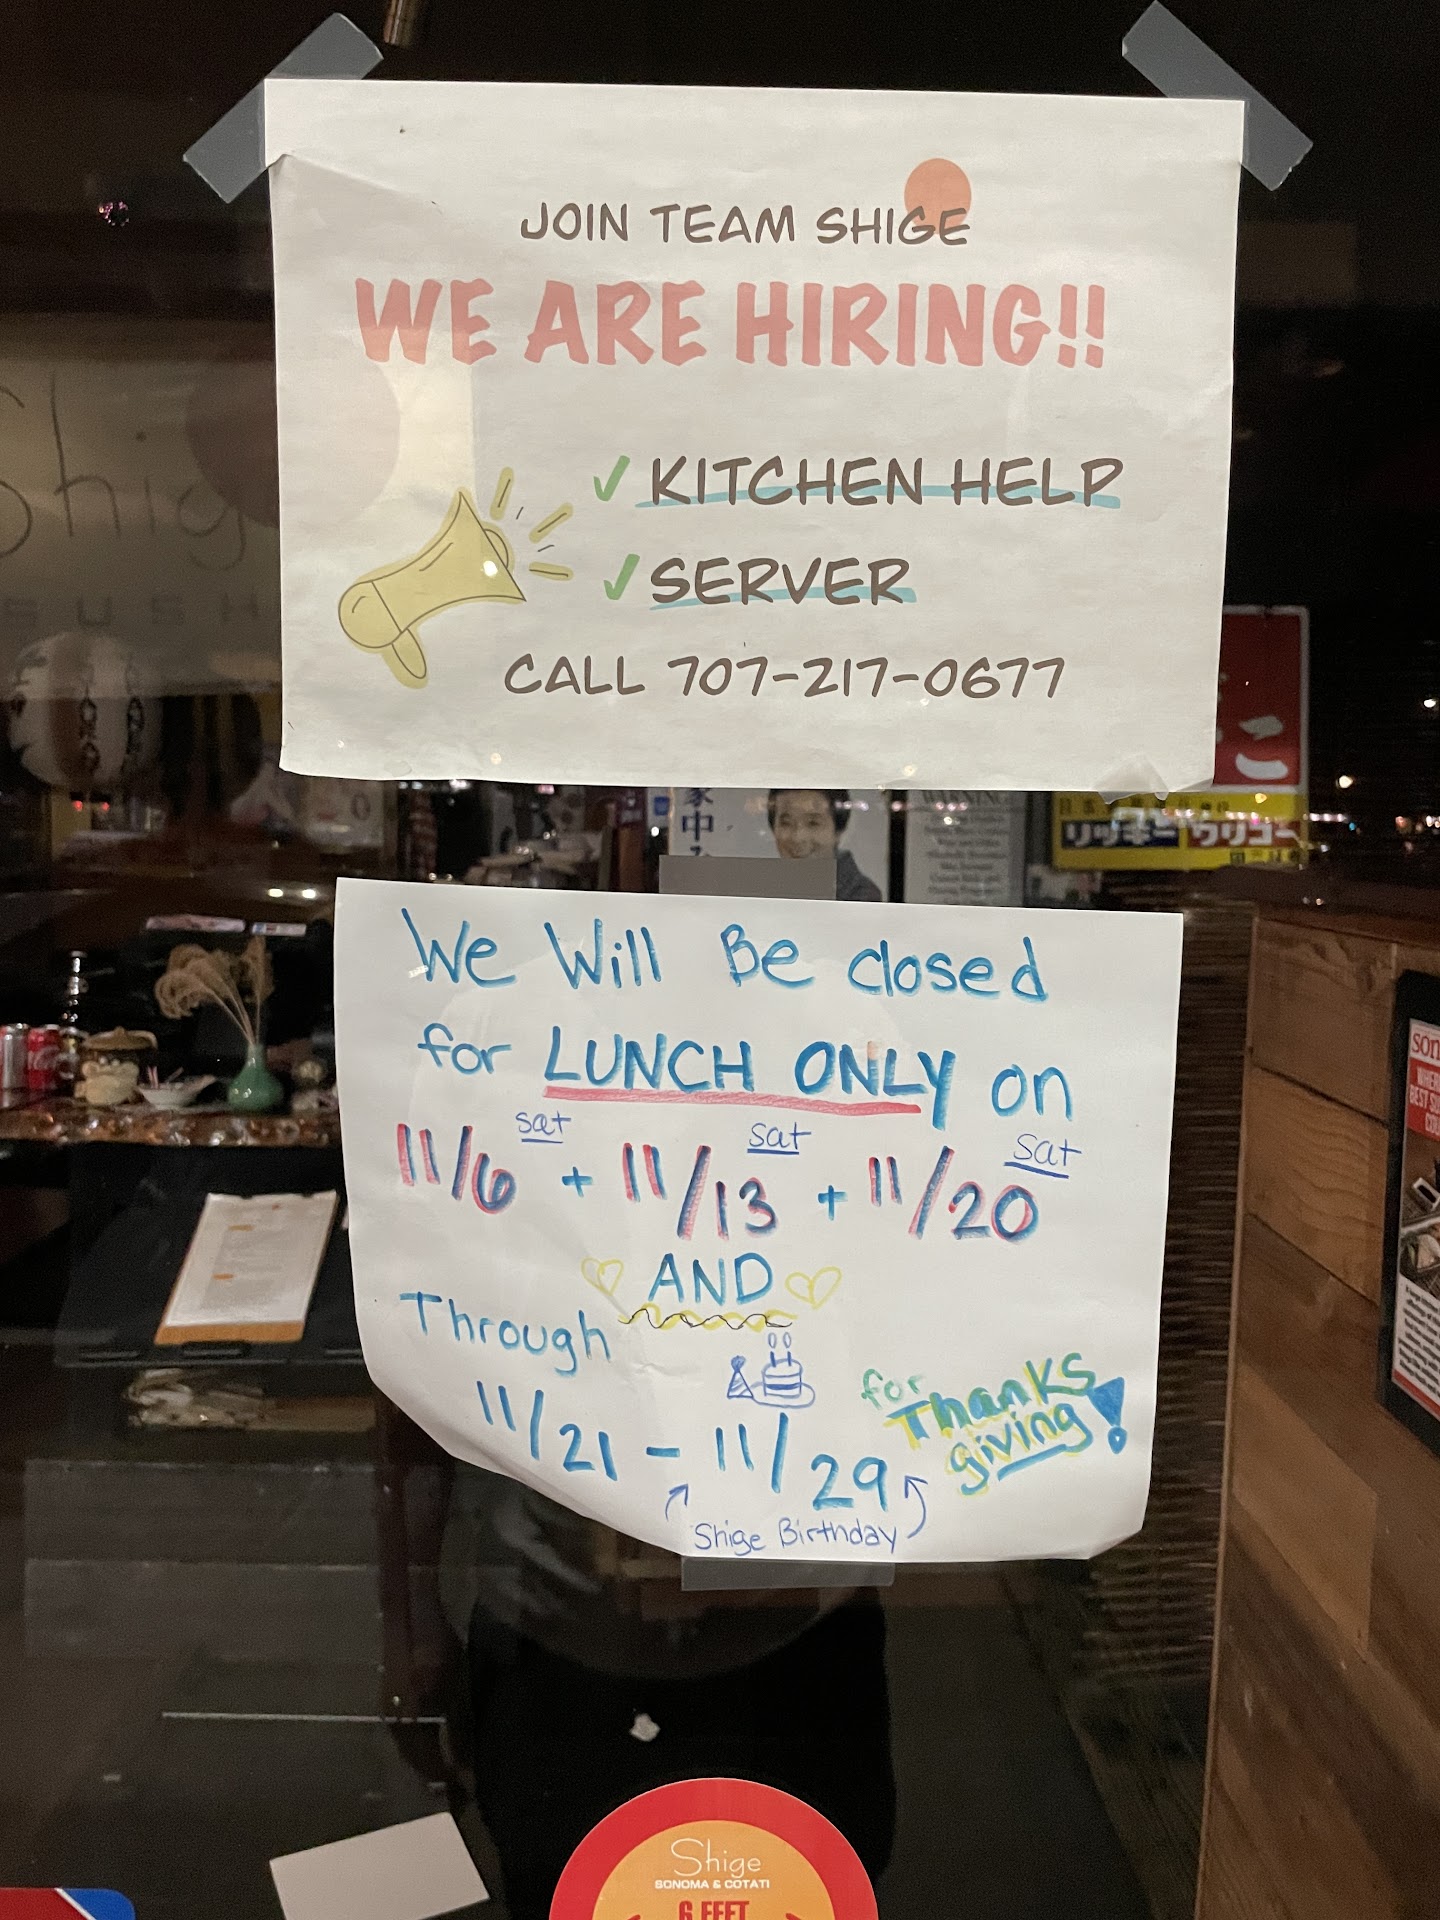 JOIN TEAM SHIGE
WE ARE HIRING!!
✓ KITCHEN HELP
✓ SERVER
CALL 707-217-0677
Shig
SUSH
こ
リッキー グリコ
家中
WARNING
We Will Be closed
for LUNCH ONLY on
11/6 sat + 11/13 sat + 11/20 sat
AND
Through
11/21 - 11/29
for Thanks
giving!
Shige Birthday
son
BEST SU
Shige
SONOMA & COTATI
6 FEET